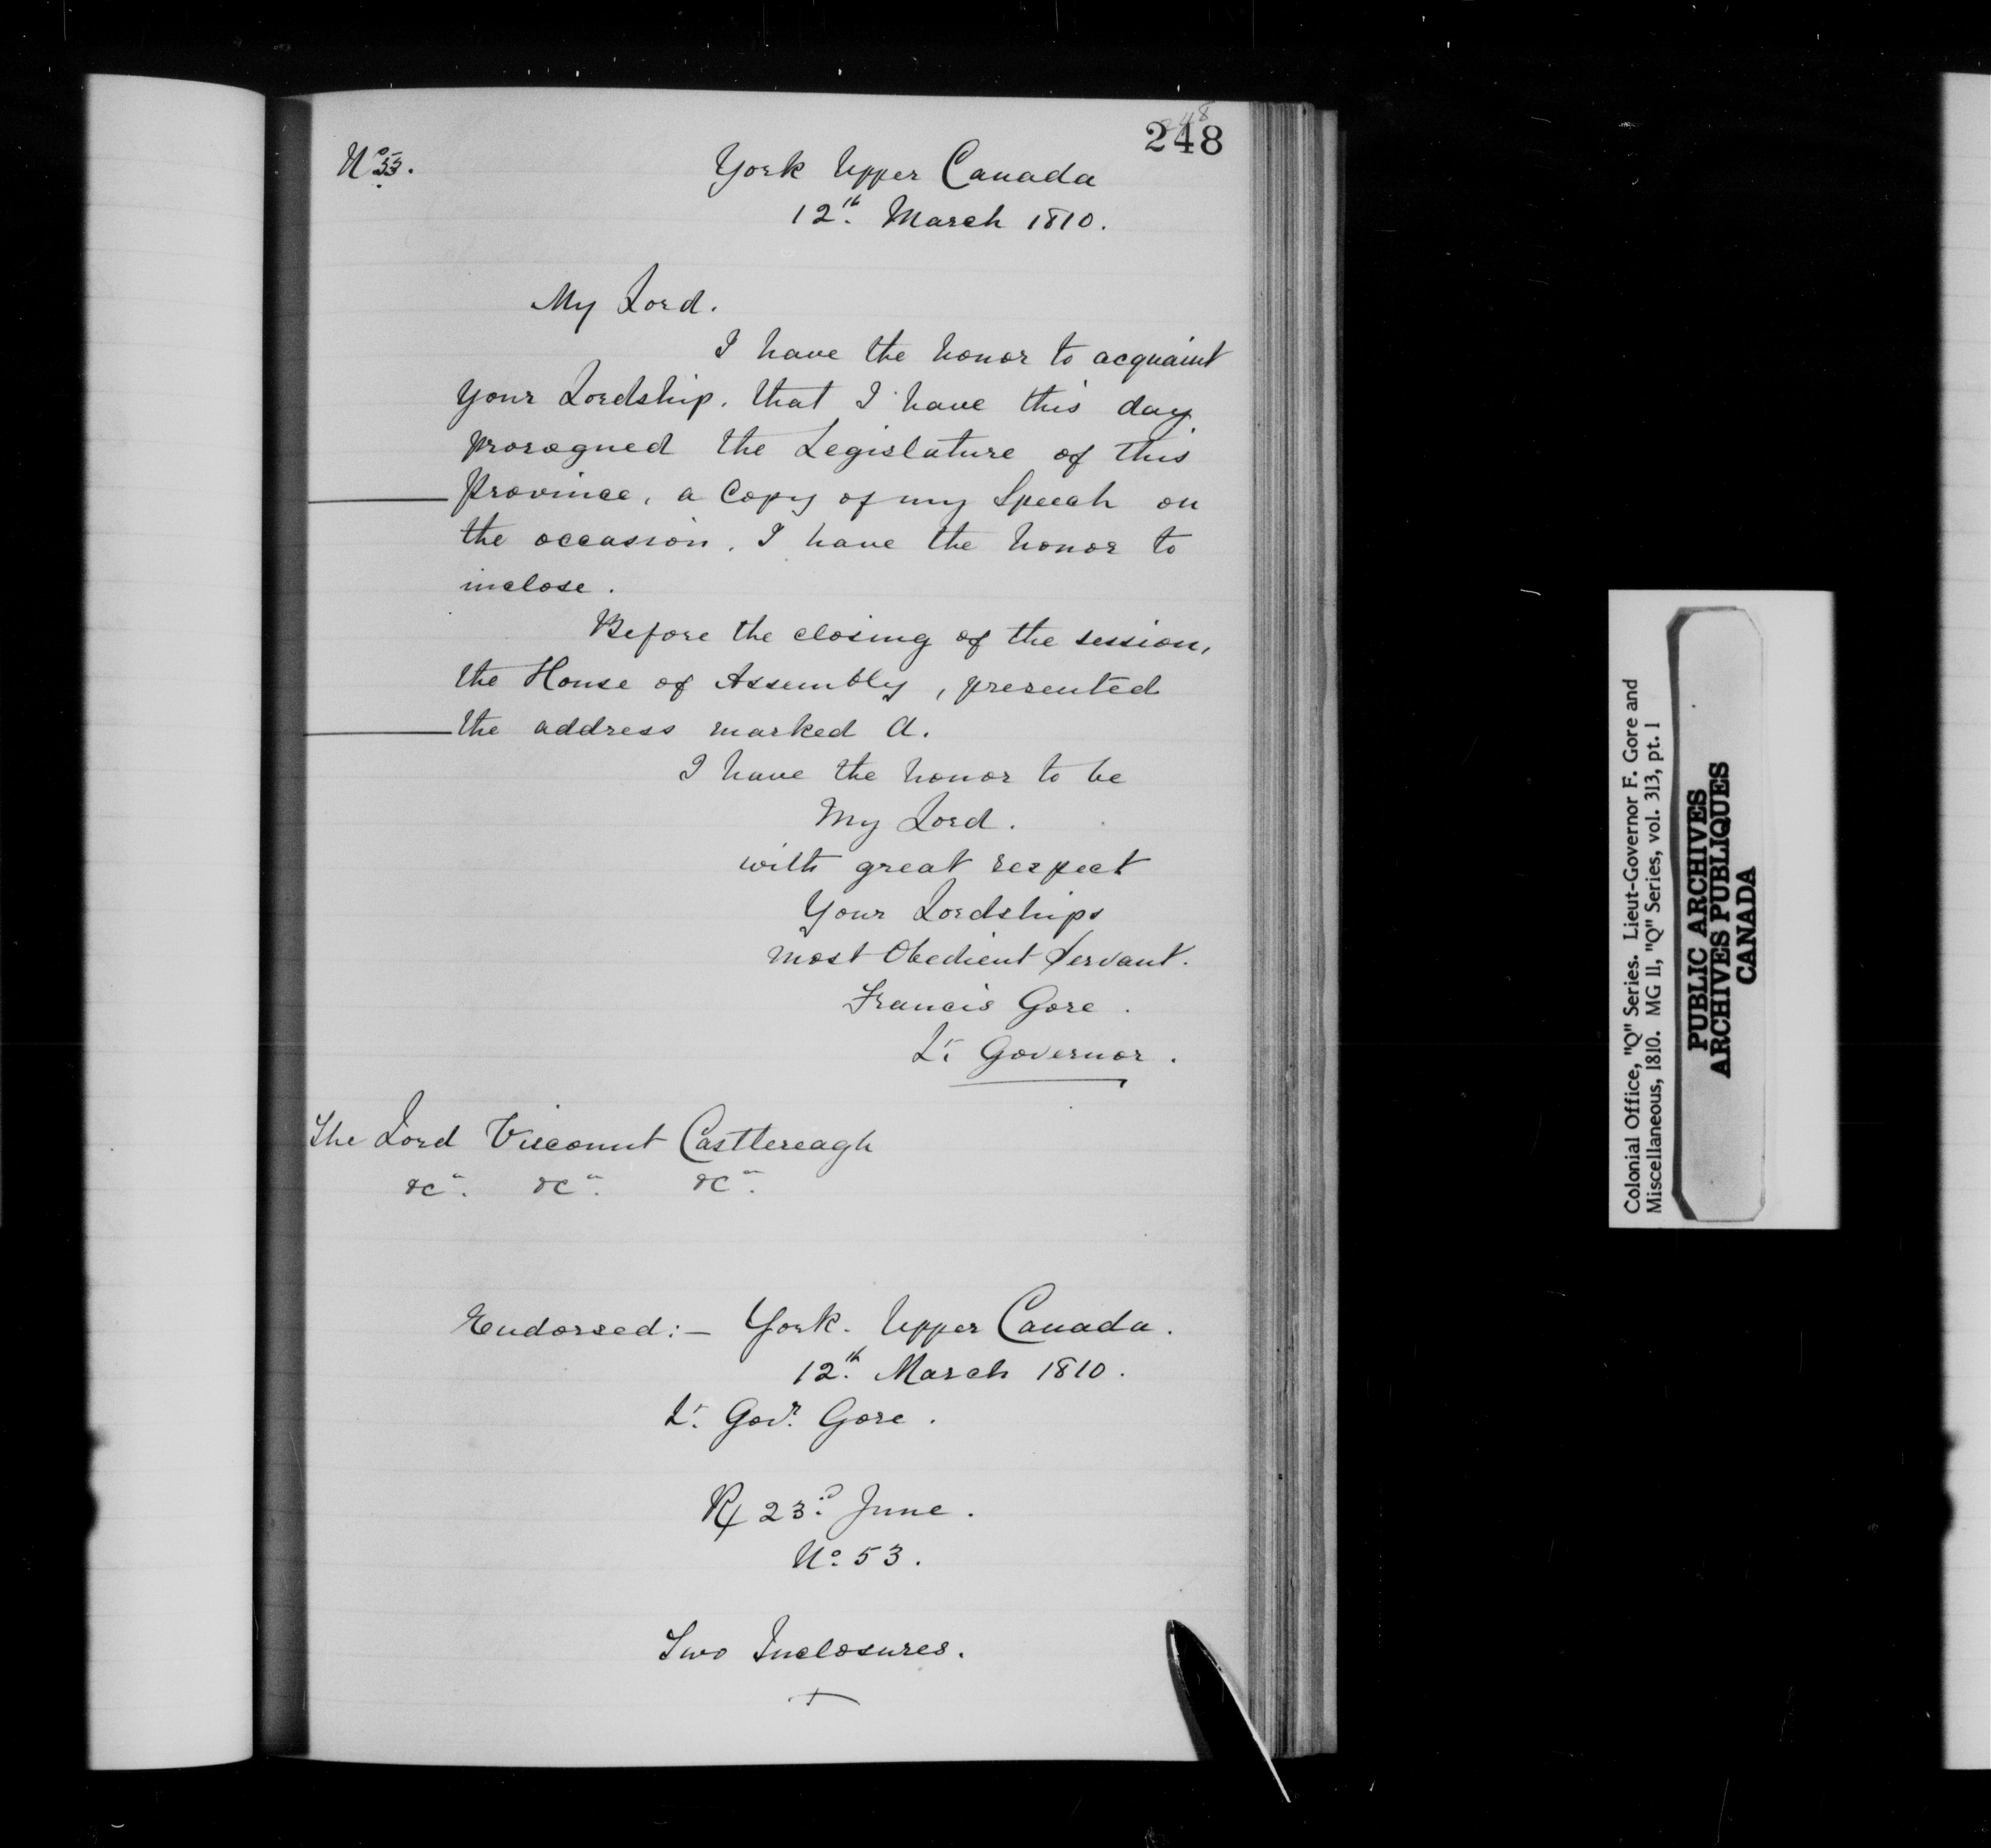 248
248
Nº 53.
York Upper Canada
12th. March 1810.
My Lord.
I have the honor to acquaint
your Lordship. that I have this day
prorogued the Legislature of this
Province, a Copy of my Speech on
the occasion, I have the honor to
inclose.
Before the closing of the session,
the House of Assembly, presented
the address marked A.
I have the honor to be
My Lord.
with great respect
Your Lordships
most Obedient Servant.
Francis Gore.
Lt. Governor.
The Lord Viscount Castlereagh
&c. &c. &c.
Endorsed:- York. Upper Canada.
12th. March 1810.
Lt. Govr. Gore.
Rx 23d. June.
No. 53.
Two Inclosures.
Colonial Office, "Q" Series. Lieut-Governor F. Gore and
Miscellaneous, 1810. MG 11, "Q" Series, vol. 313, pt. 1
PUBLIC ARCHIVES
ARCHIVES PUBLIQUES
CANADA